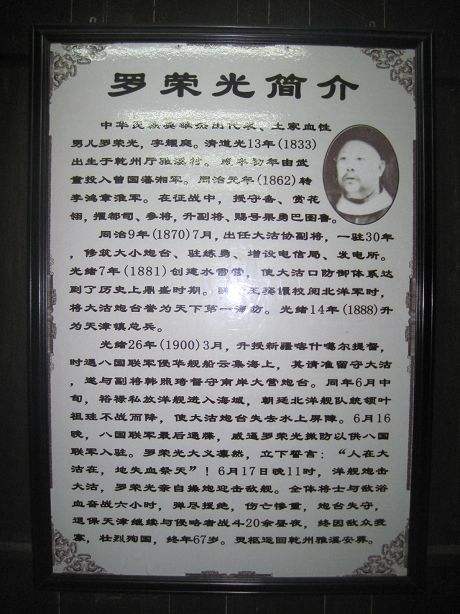 罗荣光简介
中华民族英雄杰出代表、土家血性
男儿罗荣光，字耀庭。清道光13年(1833)
出生于乾州厅雅溪村。咸丰初年由武
童投入曾国藩湘军。同治元年(1862)转
李鸿章淮军。在征战中，授守备、赏花
翎，擢都司、参将，升副将、赐号果勇巴图鲁。
同治9年(1870)7月，出任大沽协副将，一驻30年
，修筑大小炮台、驻练勇、增设电信局、发电所。
光绪7年(1881)创建水雷营，使大沽口防御体系达
到了历史上鼎盛时期。醇亲王奕譞校阅北洋军时，
将大沽炮台誉为天下第一海防。光绪14年(1888)升
为天津镇总兵。
光绪26年(1900)3月，升授新疆喀什噶尔提督，
时遇八国联军侵华舰船云集海上，其请准留守大沽
，遂与副将韩照琦督守南岸大营炮台。同年6月中
旬，裕禄私放洋舰进入海域，朝廷北洋舰队统领叶
祖珪不战而降，使大沽炮台失去水上屏障。6月16
晚，八国联军最后通牒，威逼罗荣光撤防以供八国
联军入驻。罗荣光大义凛然，立下誓言：“人在大
沽在，地失血祭天”！6月17日晚11时，洋舰炮击
大沽，罗荣光亲自操炮迎击敌舰。全体将士与敌浴
血奋战六小时，弹尽援绝，伤亡惨重，炮台失守，
退保天津继续与侵略者战斗20余昼夜，终因敌众我
寡，壮烈殉国，终年67岁。灵柩运回乾州雅溪安葬。